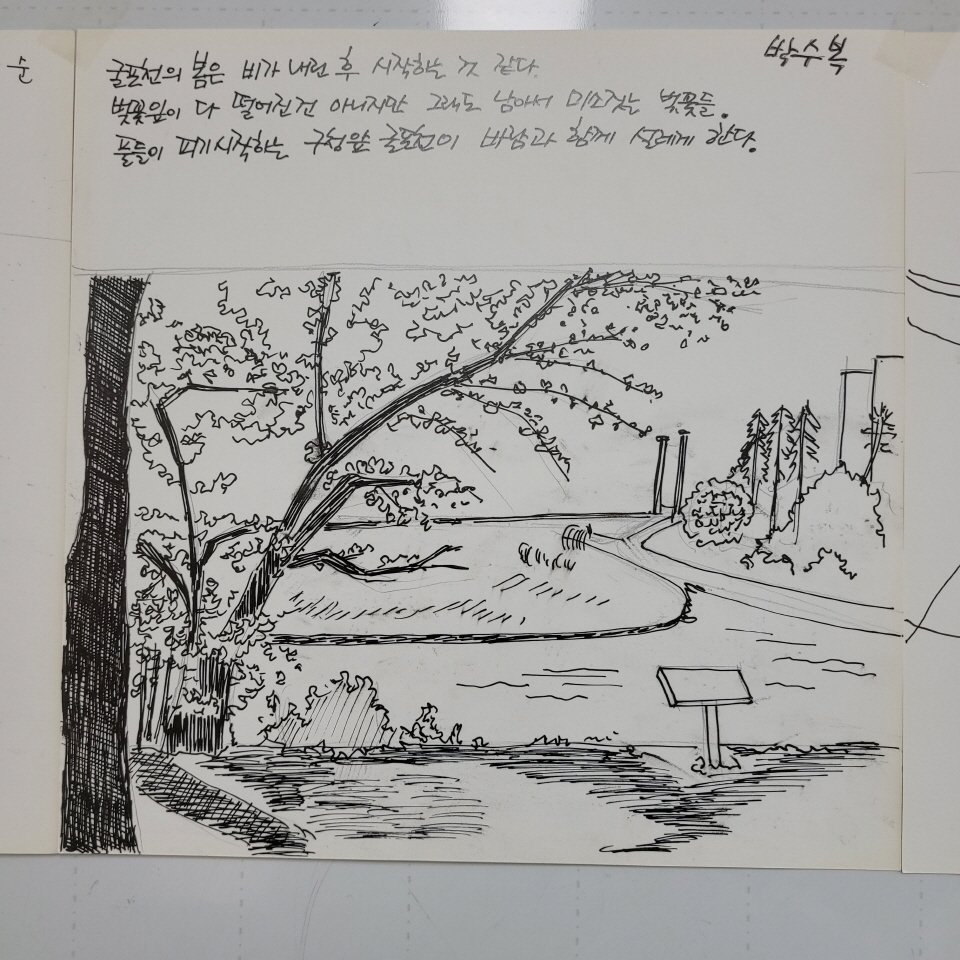 순
박수복
굴포천의 봄은 비가 내린 후 시작하는 것 같다.
벚꽃잎이 다 떨어진건 아니지만 그래도 남아서 미소짓는 벚꽃들.
풀들이 피기시작하는 구청앞 굴포천이 바람과 함께 설레게 한다.